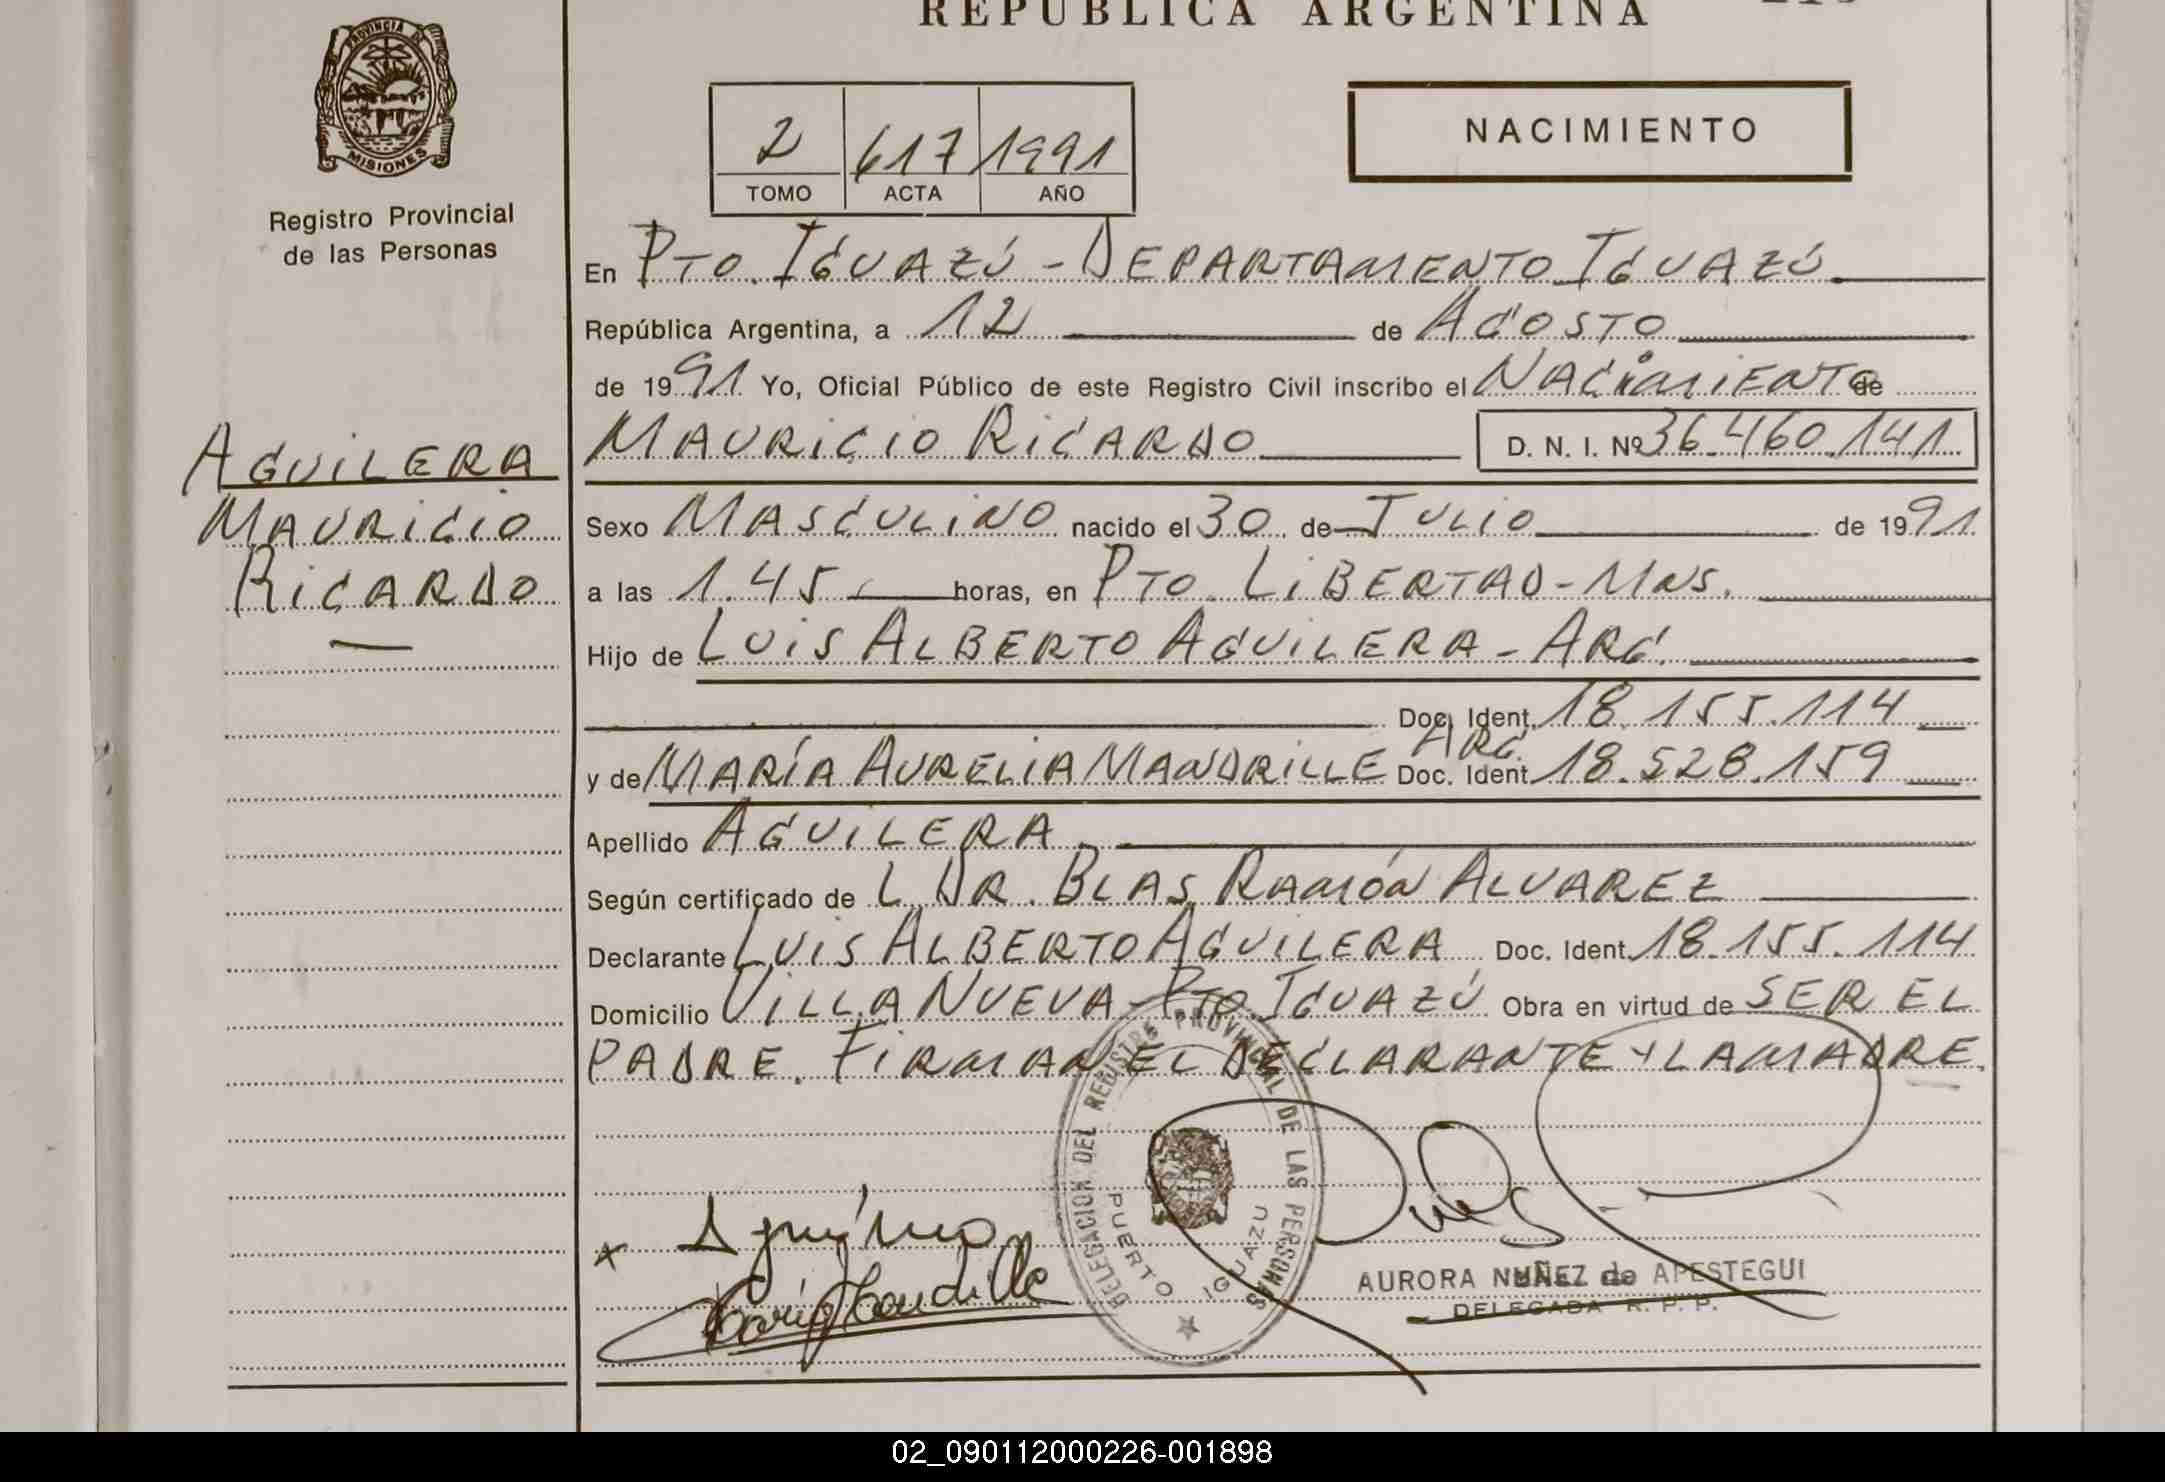 REPUBLICA ARGENTINA
PROVINCIA DE
MISIONES
Registro Provincial
de las Personas
2 617 1991
TOMO ACTA AÑO
NACIMIENTO
En PTO. IGUAZÚ - DEPARTAMENTO IGUAZÚ
República Argentina, a 12 de AGOSTO
de 1991 Yo, Oficial Público de este Registro Civil inscribo el NACIMIENTO de
MAURICIO RICARDO D. N. I. Nº 36.460.141
AGUILERA
MAURICIO
RICARDO
Sexo MASCULINO nacido el 30 de JULIO de 1991
a las 1.45 horas, en PTO. LIBERTAD - MNS.
Hijo de LUIS ALBERTO AGUILERA - ARG.
Doc. Ident. 18.155.114
ARG.
y de MARÍA AURELIA MANDRILLE Doc. Ident. 18.528.159
Apellido AGUILERA
Según certificado de L. DR. BLAS RAMÓN ALVAREZ
Declarante LUIS ALBERTO AGUILERA Doc. Ident. 18.155.114
Domicilio VILLA NUEVA - PTO. IGUAZÚ Obra en virtud de SER EL
PADRE. FIRMAN EL DECLARANTE Y LA MADRE.
DELEGACION DEL REGISTRO PROVINCIAL DE LAS PERSONAS
PUERTO IGUAZU
AURORA NUÑEZ de APESTEGUI
DELEGADA R. P. P.
02_090112000226-001898